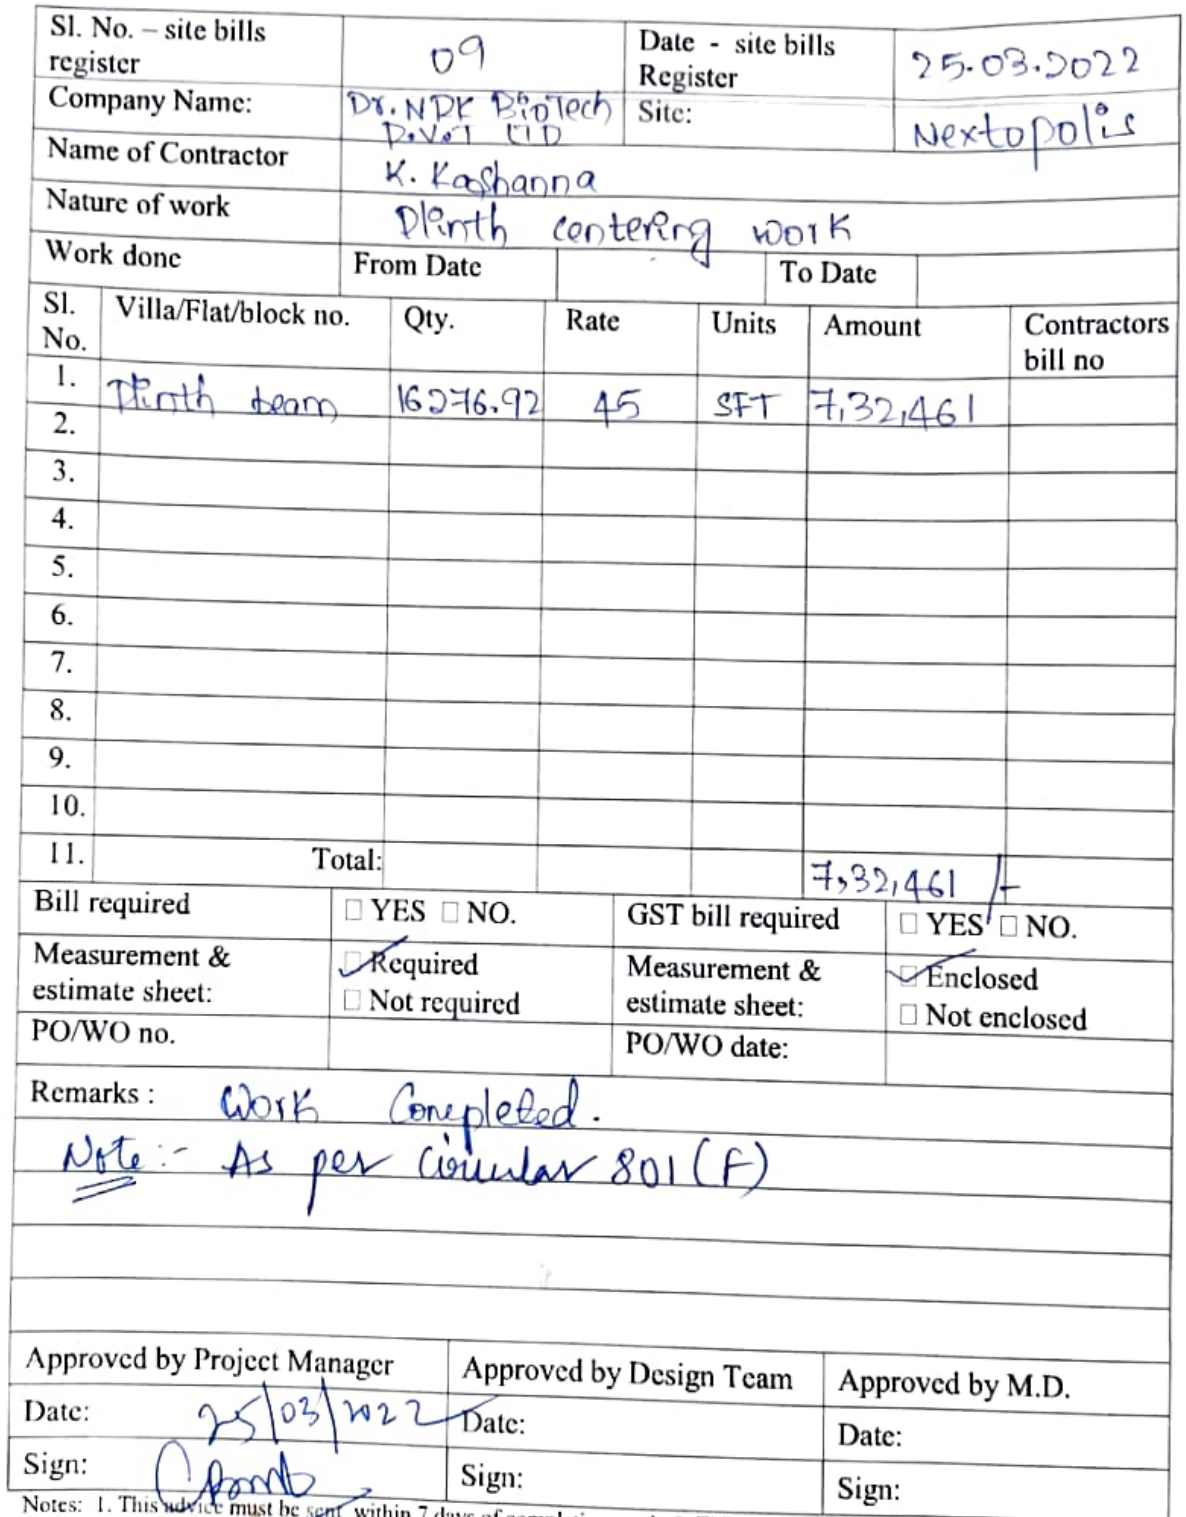 Sl. No. – site bills register 09 Date - site bills Register 25.03.2022
Company Name: Dr. NDK BioTech P.V.T LTD Site: Nextopolis
Name of Contractor K. Kashanna
Nature of work Plinth centering work
Work done From Date To Date
Sl. No. Villa/Flat/block no. Qty. Rate Units Amount Contractors bill no
1. Plinth beam 16276.92 45 SFT 7,32,461
2.
3.
4.
5.
6.
7.
8.
9.
10.
11. Total: 7,32,461 /-
Bill required □ YES □ NO. GST bill required □ YES □ NO.
Measurement & estimate sheet: □ Required □ Not required Measurement & estimate sheet: □ Enclosed □ Not enclosed
PO/WO no. PO/WO date:
Remarks : Work Completed.
Note :- As per Circular 801 (F)
Approved by Project Manager Approved by Design Team Approved by M.D.
Date: 25/03/2022 Date: Date:
Sign: Sign: Sign:
Notes: 1. This advice must be sent within 7 days of